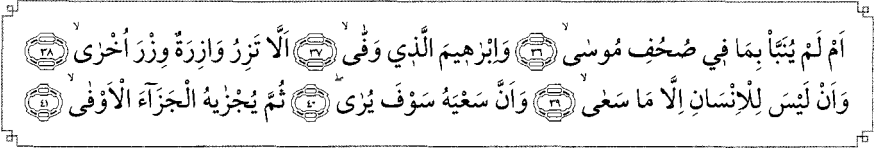 اَمْ لَمْ يُنَبَّأْ بِمَا ف۪ي صُحُفِ مُوسٰىۙ ﴿٣٦﴾ وَاِبْرٰه۪يمَ الَّذ۪ي وَفّٰىۙ ﴿٣٧﴾ اَلَّا تَزِرُ وَازِرَةٌ وِزْرَ اُخْرٰىۙ ﴿٣٨﴾
وَاَنْ لَيْسَ لِلْاِنْسَانِ اِلَّا مَا سَعٰىۙ ﴿٣٩﴾ وَاَنَّ سَعْيَهُ سَوْفَ يُرٰىۖ ﴿٤٠﴾ ثُمَّ يُجْزٰيهُ الْجَزَٓاءَ الْاَوْفٰىۙ ﴿٤١﴾